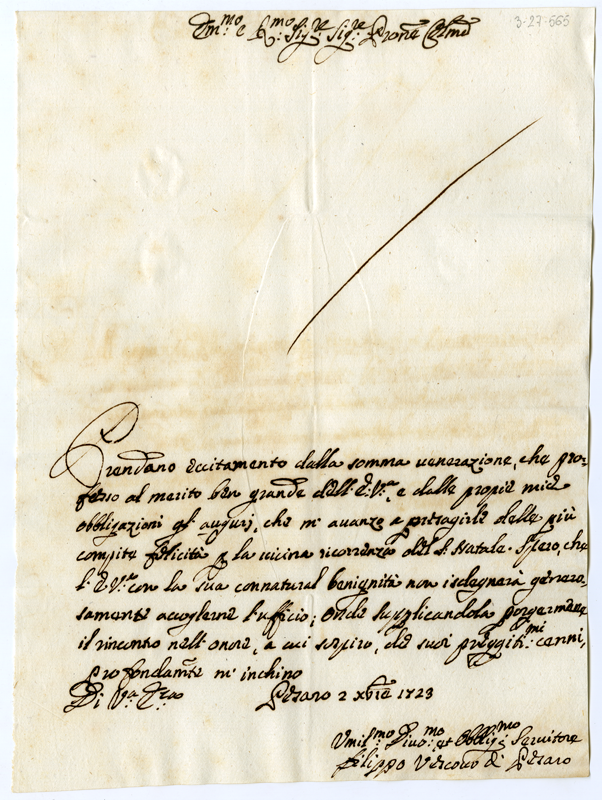 3-27-665
Em:mo e R:mo Sig:re Sig:re Prone Colmo
Prendano eccitamento dalla somma venerazione, che pro-
fesso al merito ben grande dell'E.V:ra, e dalle proprie mie
obbligazioni gl'augurj, che m'avanzo a presagirle delle più
compite felicità p la vicina ricorrenza del S. Natale. Spero, che
l'E.V:ra con la sua connatural benignità non isdegnerà genero-
samente accoglierne l'ufficio; Onde supplicandola porgermene
il rincontro nell'onore, a cui sospiro, de suoi preggiati:mi cenni,
profondamte m'inchino
Di V:ra Em:za Pesaro 2 Xbre 1723
Umil:mo Divo:mo et Obblig:mo Servitore
Filippo Vescovo di Pesaro